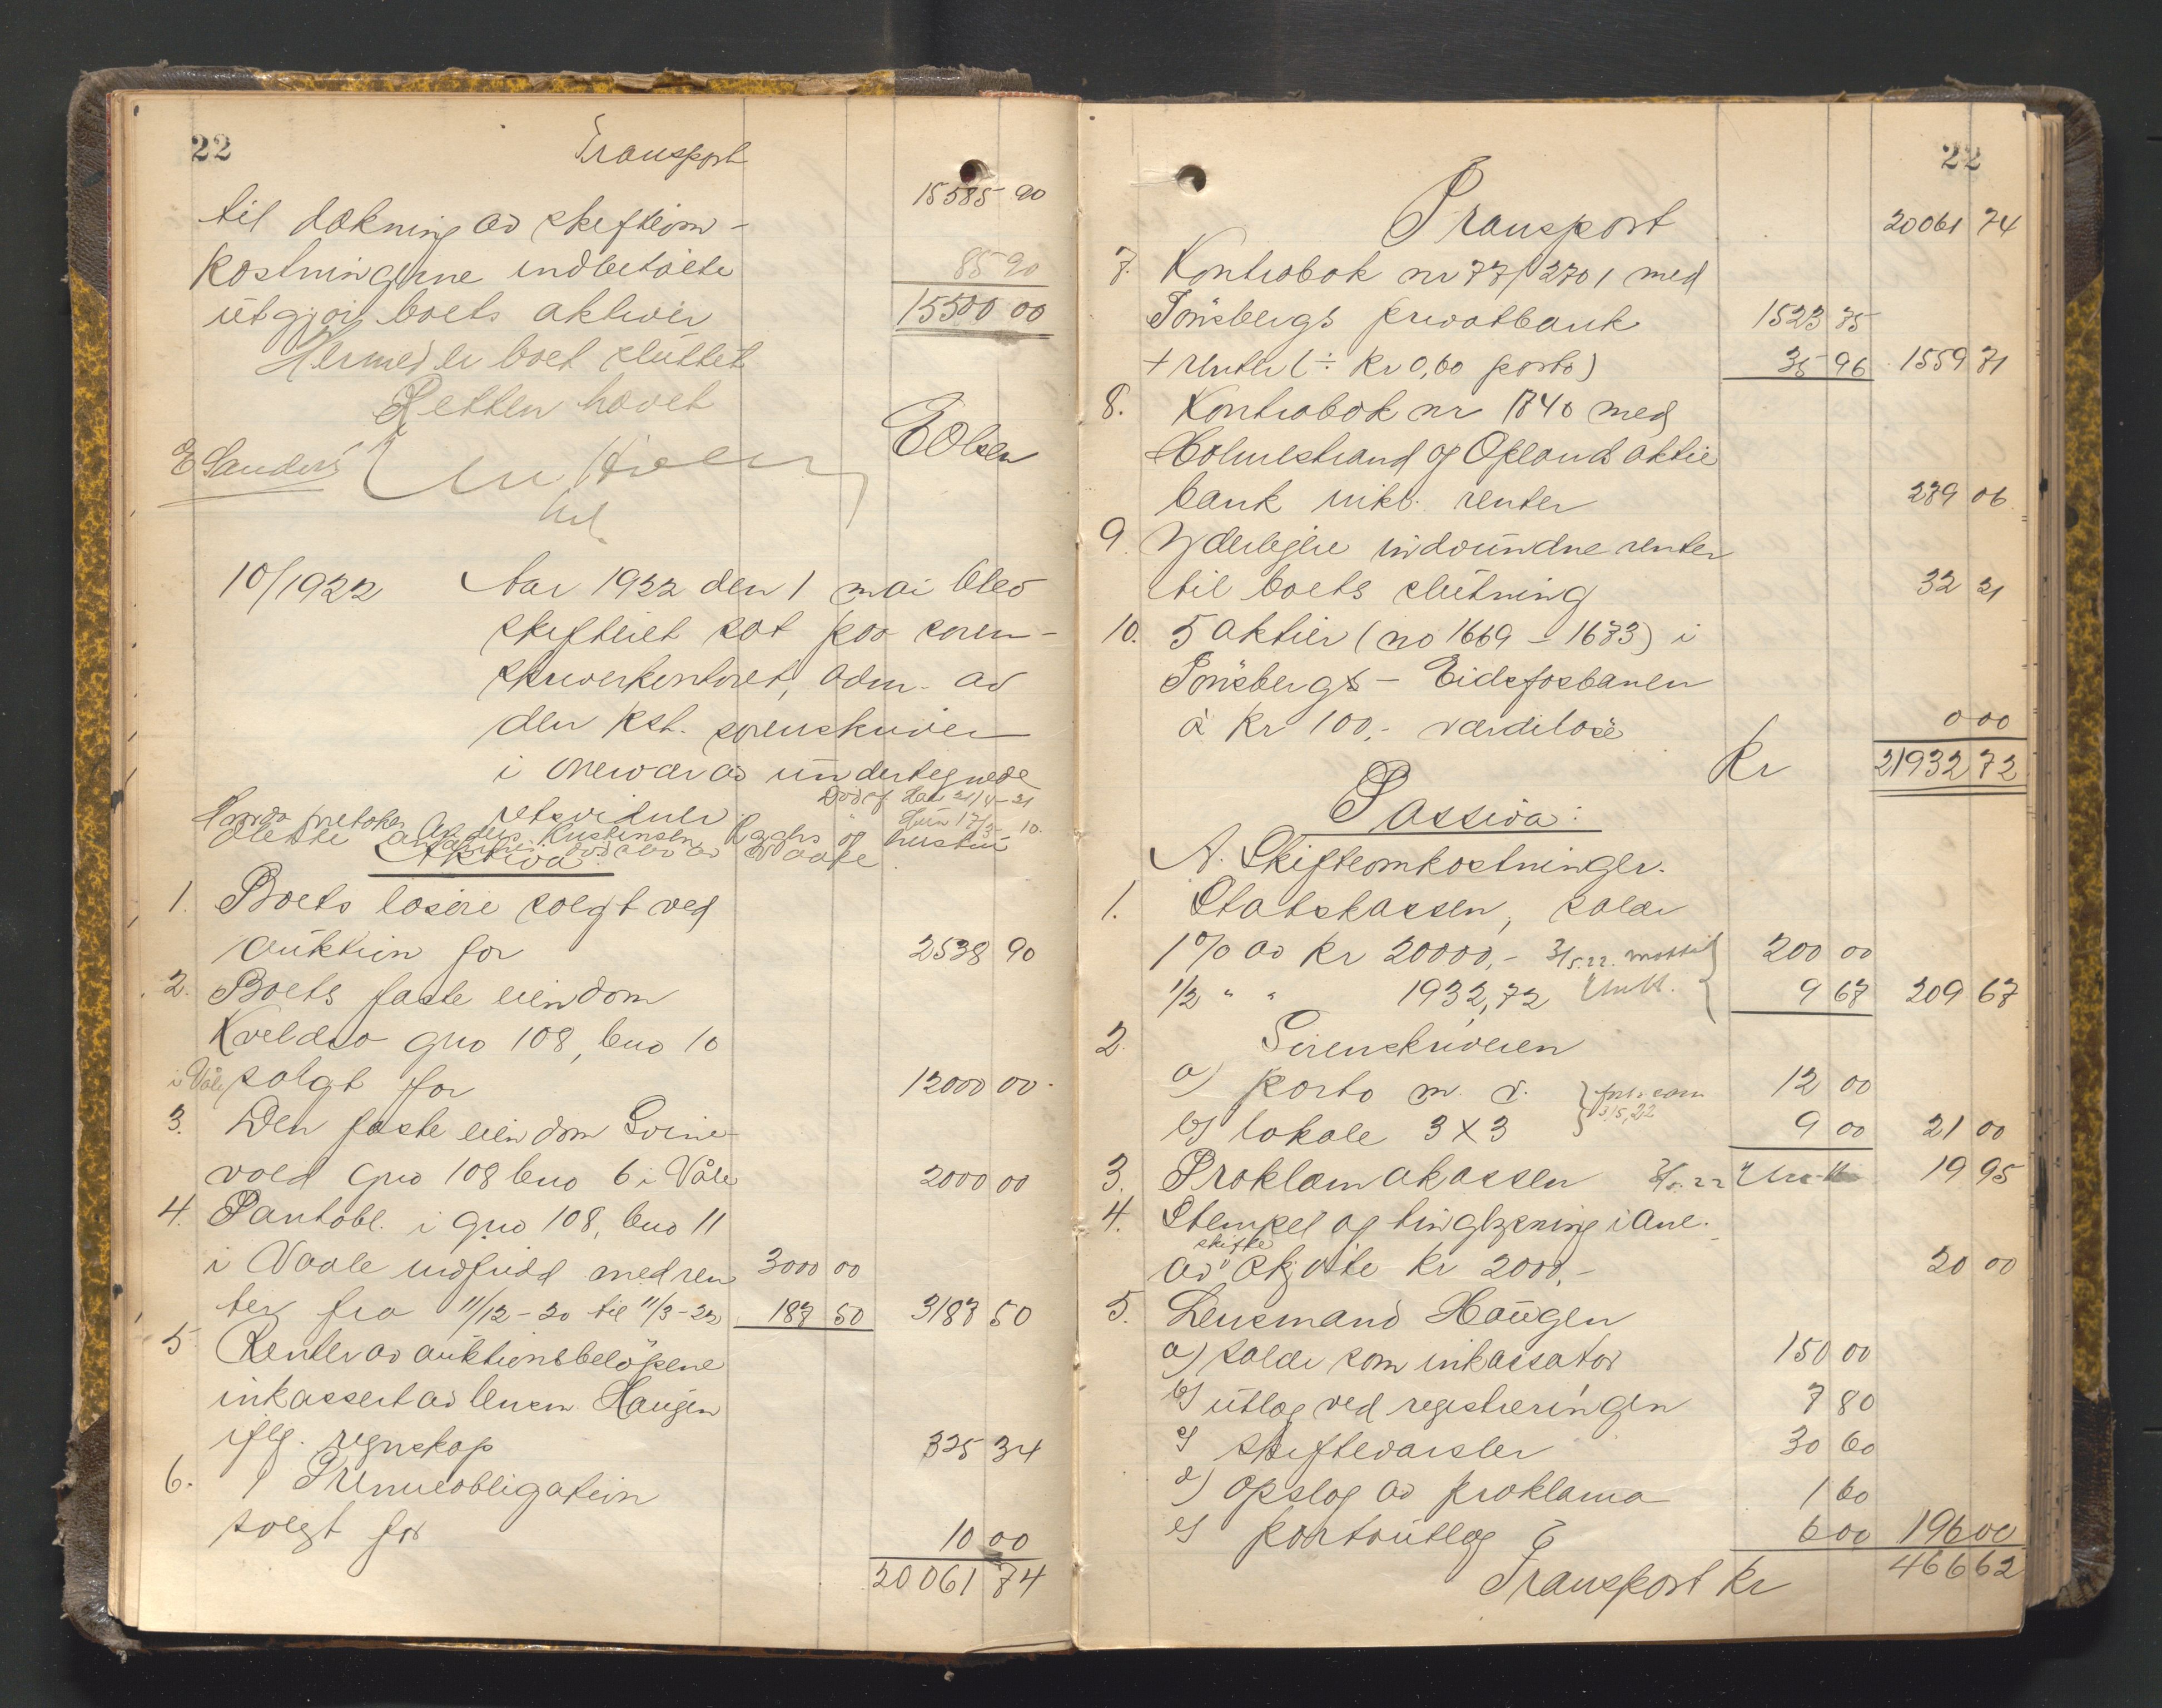 22
Transport
15585 90
til dækning av skifteom-
kostningerne indbetalte
85 90
utgjør boets aktiver
15500 00
Hermed er boet sluttet
Retten hævet
E Sanders
E Olsen
10/1922 Aar 1922 den 1 mai blev
skifteret sat paa soren-
skriverkontoret, adm. av
den kst. sorenskriver
i nærvær av undertegnede
retsvidner
Død Han 21/4-21
Hun 17/3-10.
Aktiva
1. Boets løsøre solgt ved
auktion for 2538 90
2. Boets faste eiendom
Kveldro gno 108, bno 10
i Våle solgt for 12000 00
3. Den faste eiendom Svine-
vold gno 108 bno 6 i Våle 2000 00
4. Pantobl. i gno 108, bno 11
i Vaale indfridd med ren 3000 00
ter fra 11/12-20 til 11/3-22 187 50 3187 50
5 Renter av auktionsbeløpene
inkassert av lensm. Haugen
iflg. regnskap 325 34
6. 1 Premieobligation
solgt for 10 00
20061 74
22
Transport 20061 74
7. Kontrabok nr 77/2701 med
Tønsbergs privatbank 1523 75
+ renter (÷ kr 0,60 porto) 35 96 1559 71
8. Kontrabok nr 1840 med
Holmestrand og Oplands aktie
bank inkl. renter 279 06
9. Yderligere indvundne renter
til boets slutning 32 21
10. 5 aktier (no 1669 - 1673) i
Tønsbergs - Eidsfosbanen
à kr 100,- værdiløse 0 00
Kr 21932 72
Passiva:
A. Skifteomkostninger.
1. Statskassen, salær
1% av kr 20000,- 200 00
½ " " 1932,72 9 67 209 67
2. Sorenskriveren
a) porto m. v. 12 00
b) lokale 3 x 3 9 00 21 00
3. Proklamakassen 19 95
4. Stempel og tinglysning i anl.
av skifteskjøte kr 2000,- 20 00
5. Lensmand Haugen
a) salær som inkassator 150 00
b) utlæg ved registreringen 7 80
c) skiftevarsler 30 60
d) opslag av proklama 1 60
e) portoutlæg 6 00 196 00
Transport kr 466 62